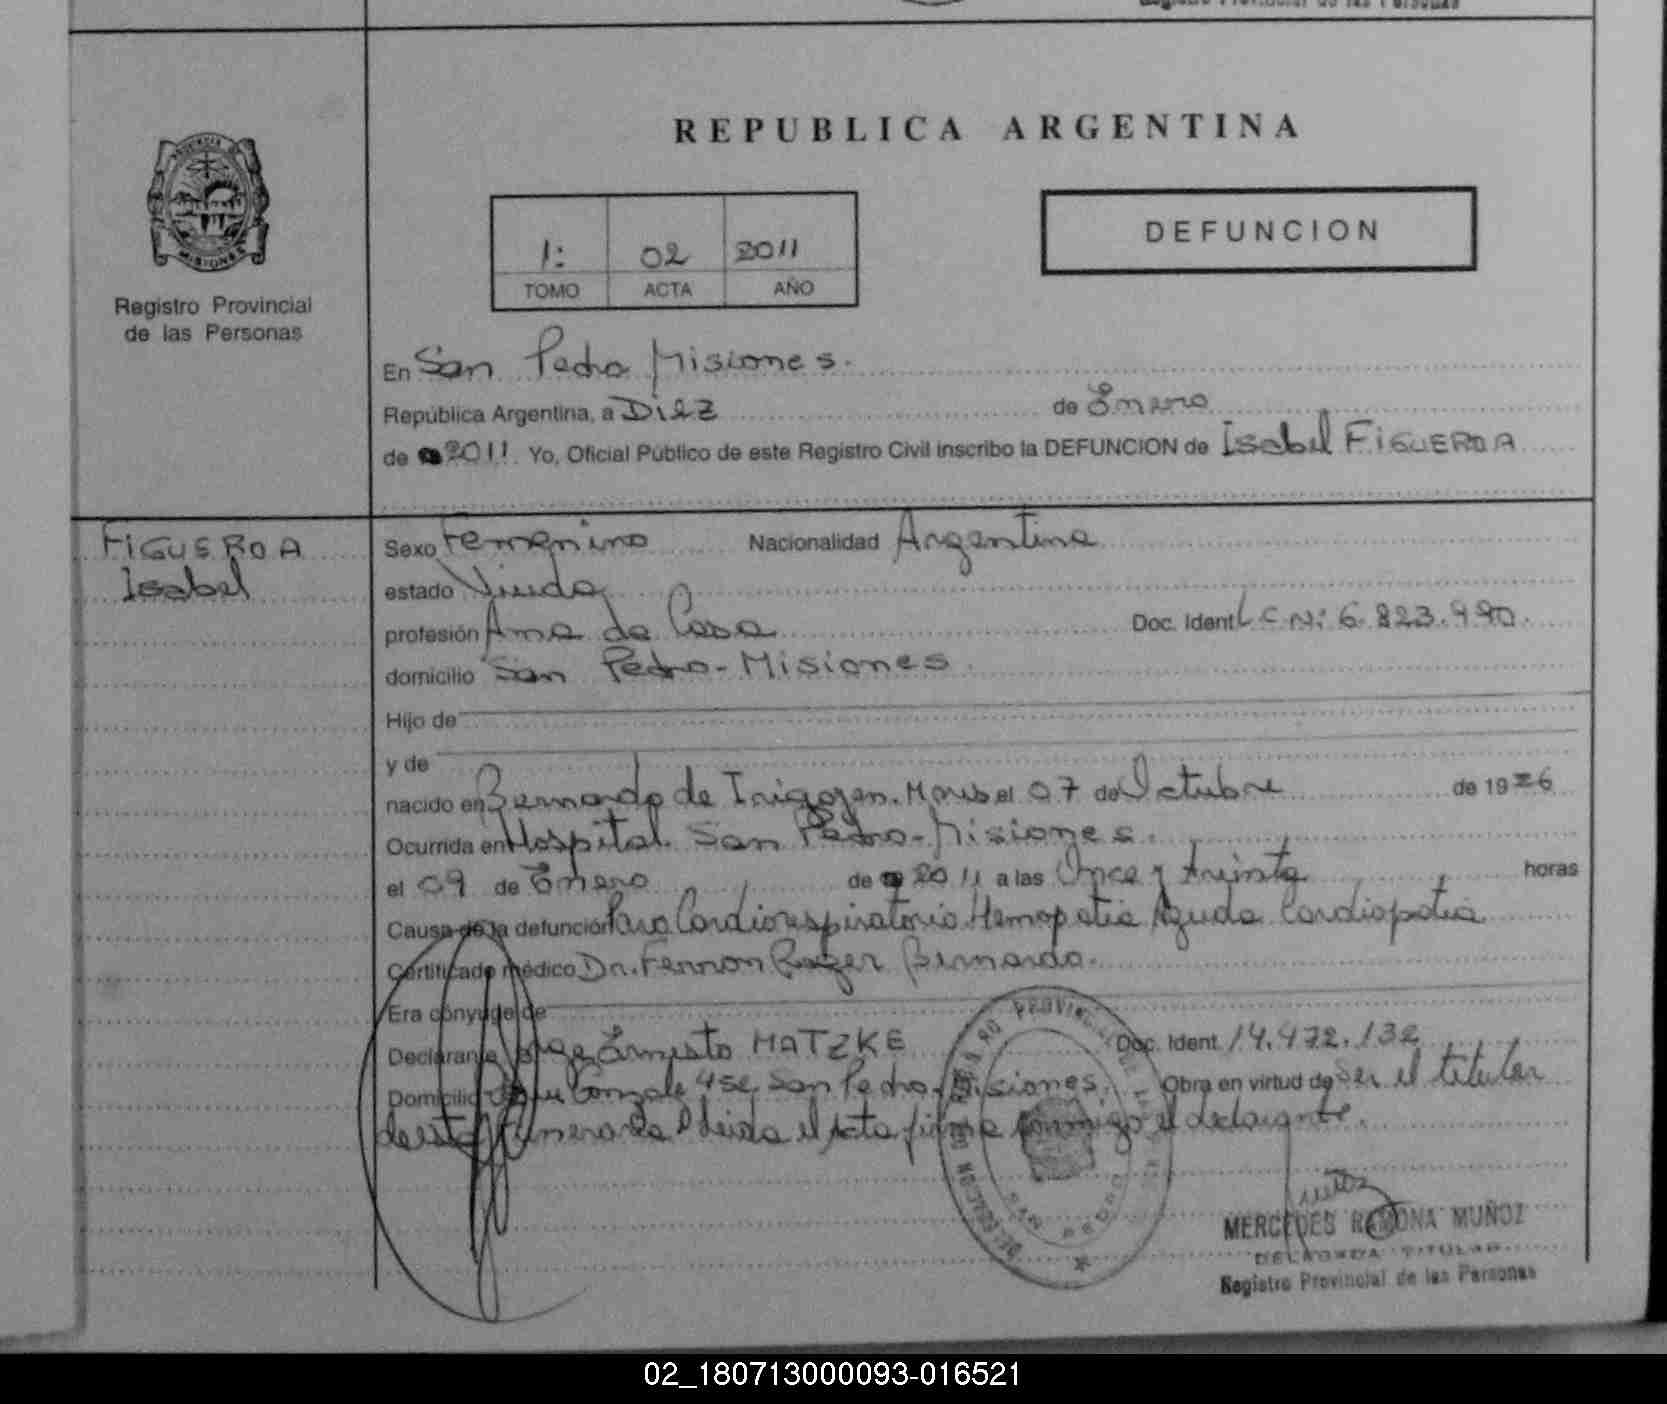 Registro Provincial de las Personas
REPUBLICA ARGENTINA
PROVINCIA DE
MISIONES
Registro Provincial
de las Personas
1: 02 2011
TOMO ACTA AÑO
DEFUNCION
En San Pedro Misiones.
República Argentina, a Diez de Enero
de 2011 Yo, Oficial Público de este Registro Civil inscribo la DEFUNCION de Isabel FIGUEROA
FIGUEROA
Isabel
Sexo Femenino Nacionalidad Argentina
estado Viuda
profesión Ama de Casa Doc. Ident L C Nº 6.823.990.
domicilio San Pedro - Misiones
Hijo de
y de
nacido en Bernardo de Irigoyen. Mnes el 07 de Octubre de 19
Ocurrida en Hospital San Pedro - Misiones.
el 09 de Enero de 2011 a las Once y treinta horas
Causa de la defunción Paro Cardiorespiratorio Hemopatia Aguda Cardiopatia
Certificado médico Dr. Ferron Roger Bernardo.
Era cónyuge de
Declarante Jorge Ernesto MATZKE Doc. Ident. 14.472.132
Domicilio San Pedro - Misiones. Obra en virtud de Ser el titular
de esta funeraria leida el acta firma conmigo el declarante.
SAN PEDRO
MERCEDES RAMONA MUÑOZ
DELEGADA TITULAR
Registro Provincial de las Personas
02_180713000093-016521